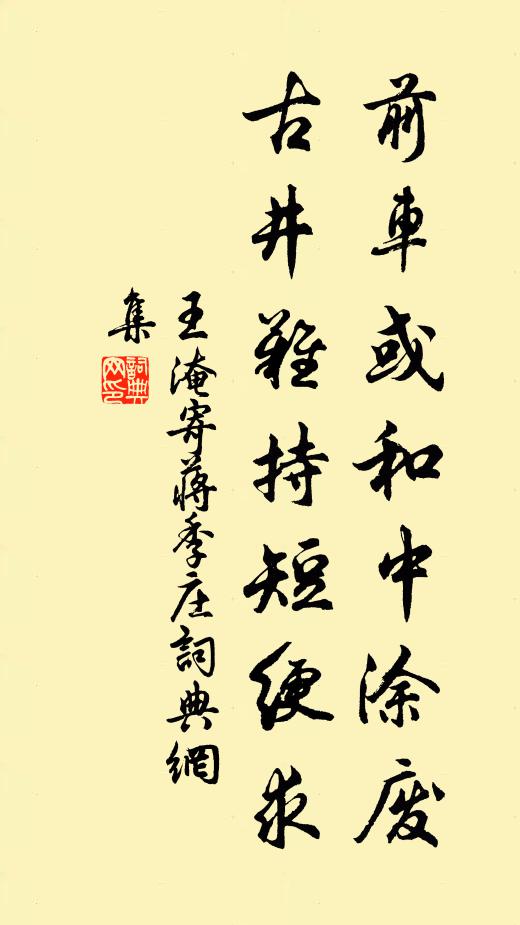 前車或和中涂廢
古井難持短綆求
王淹寄蔣季庄詞典網
集
詞典
网印